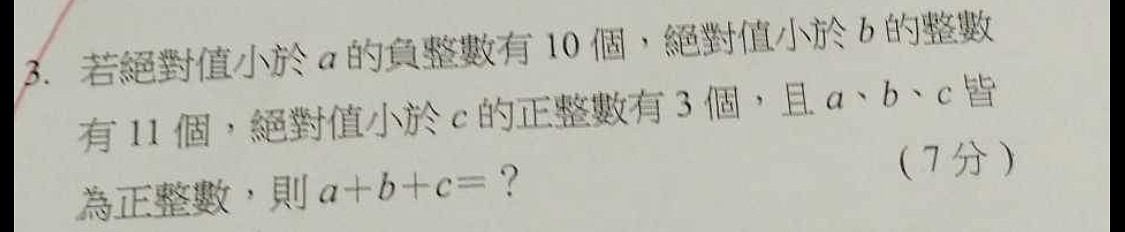 3. 若絕對值小於 a 的負整數有 10 個，絕對值小於 b 的整數
有 11 個，絕對值小於 c 的正整數有 3 個，且 a、b、c 皆
為正整數，則 a+b+c=？ （7分）